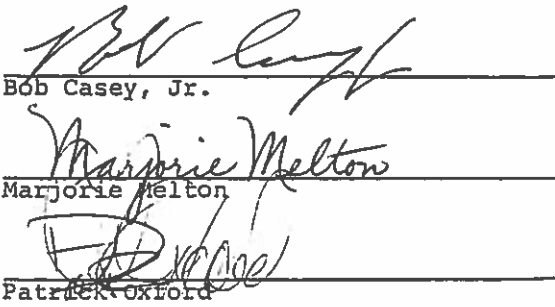 Bob Casey
Bob Casey, Jr.
Marjorie Melton
Marjorie Melton
Patrick Oxford